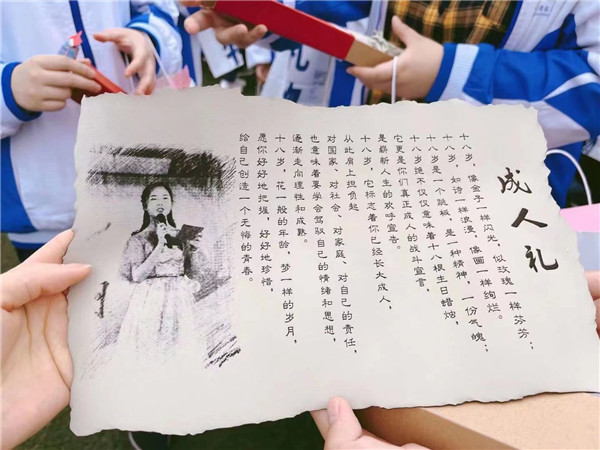 成人礼
十八岁，像金子一样闪光，似玫瑰一样芬芳；
十八岁，如诗一样浪漫，像画一样绚烂。
十八岁是一个跳板，是一种精神，一份气魄；
十八岁绝不仅仅意味着十八根生日蜡烛，
它更是你们真正成人的战斗宣言，
是崭新人生的欢呼宣告。
十八岁，它标志着你已经长大成人，
从此肩上担负起
对国家、对社会、对家庭、对自己的责任，
也意味着要学会驾驭自己的情绪和思想，
逐渐走向理性和成熟。
十八岁，花一般的年龄，梦一样的岁月，
愿你好好地把握，好好地珍惜，
给自己创造一个无悔的青春。